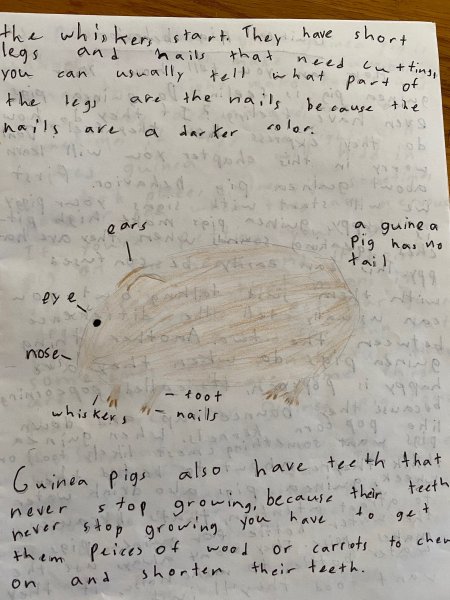 the whiskers start. They have short
legs and nails that need cutting,
you can usually tell what part of
the legs are the nails because the
nails are a darker color.
ears
a guinea
pig has no
tail
eye
nose
whiskers
foot
nails
Guinea pigs also have teeth that
never stop growing, because their teeth
never stop growing you have to get
them peices of wood or carrots to chew
on and shorten their teeth.